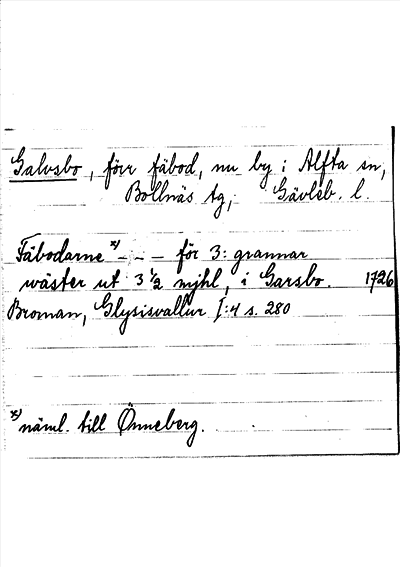 Galvsbo, förr fäbod, nu by i Alfta sn,
Bollnäs tg, Gävleb. l.
Fäbodarne *) - - - för 3: grannar
wäster ut 3 1/2 mjhl, i Garsbo. 1726
Broman, Glysisvallur I:4 s. 280
*) näml. till Önneberg.